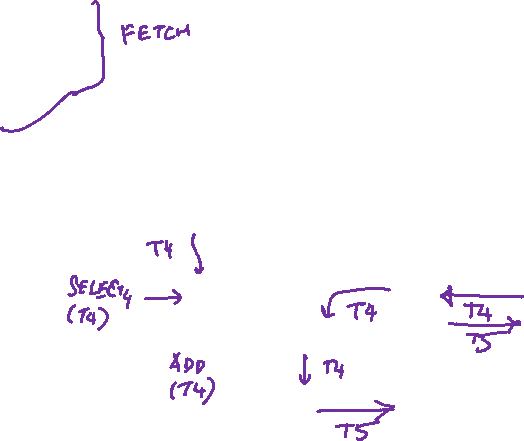 FETCH
T4
SELECT4
(T4)
T4
T4
T5
ADD
(T4)
T4
T5